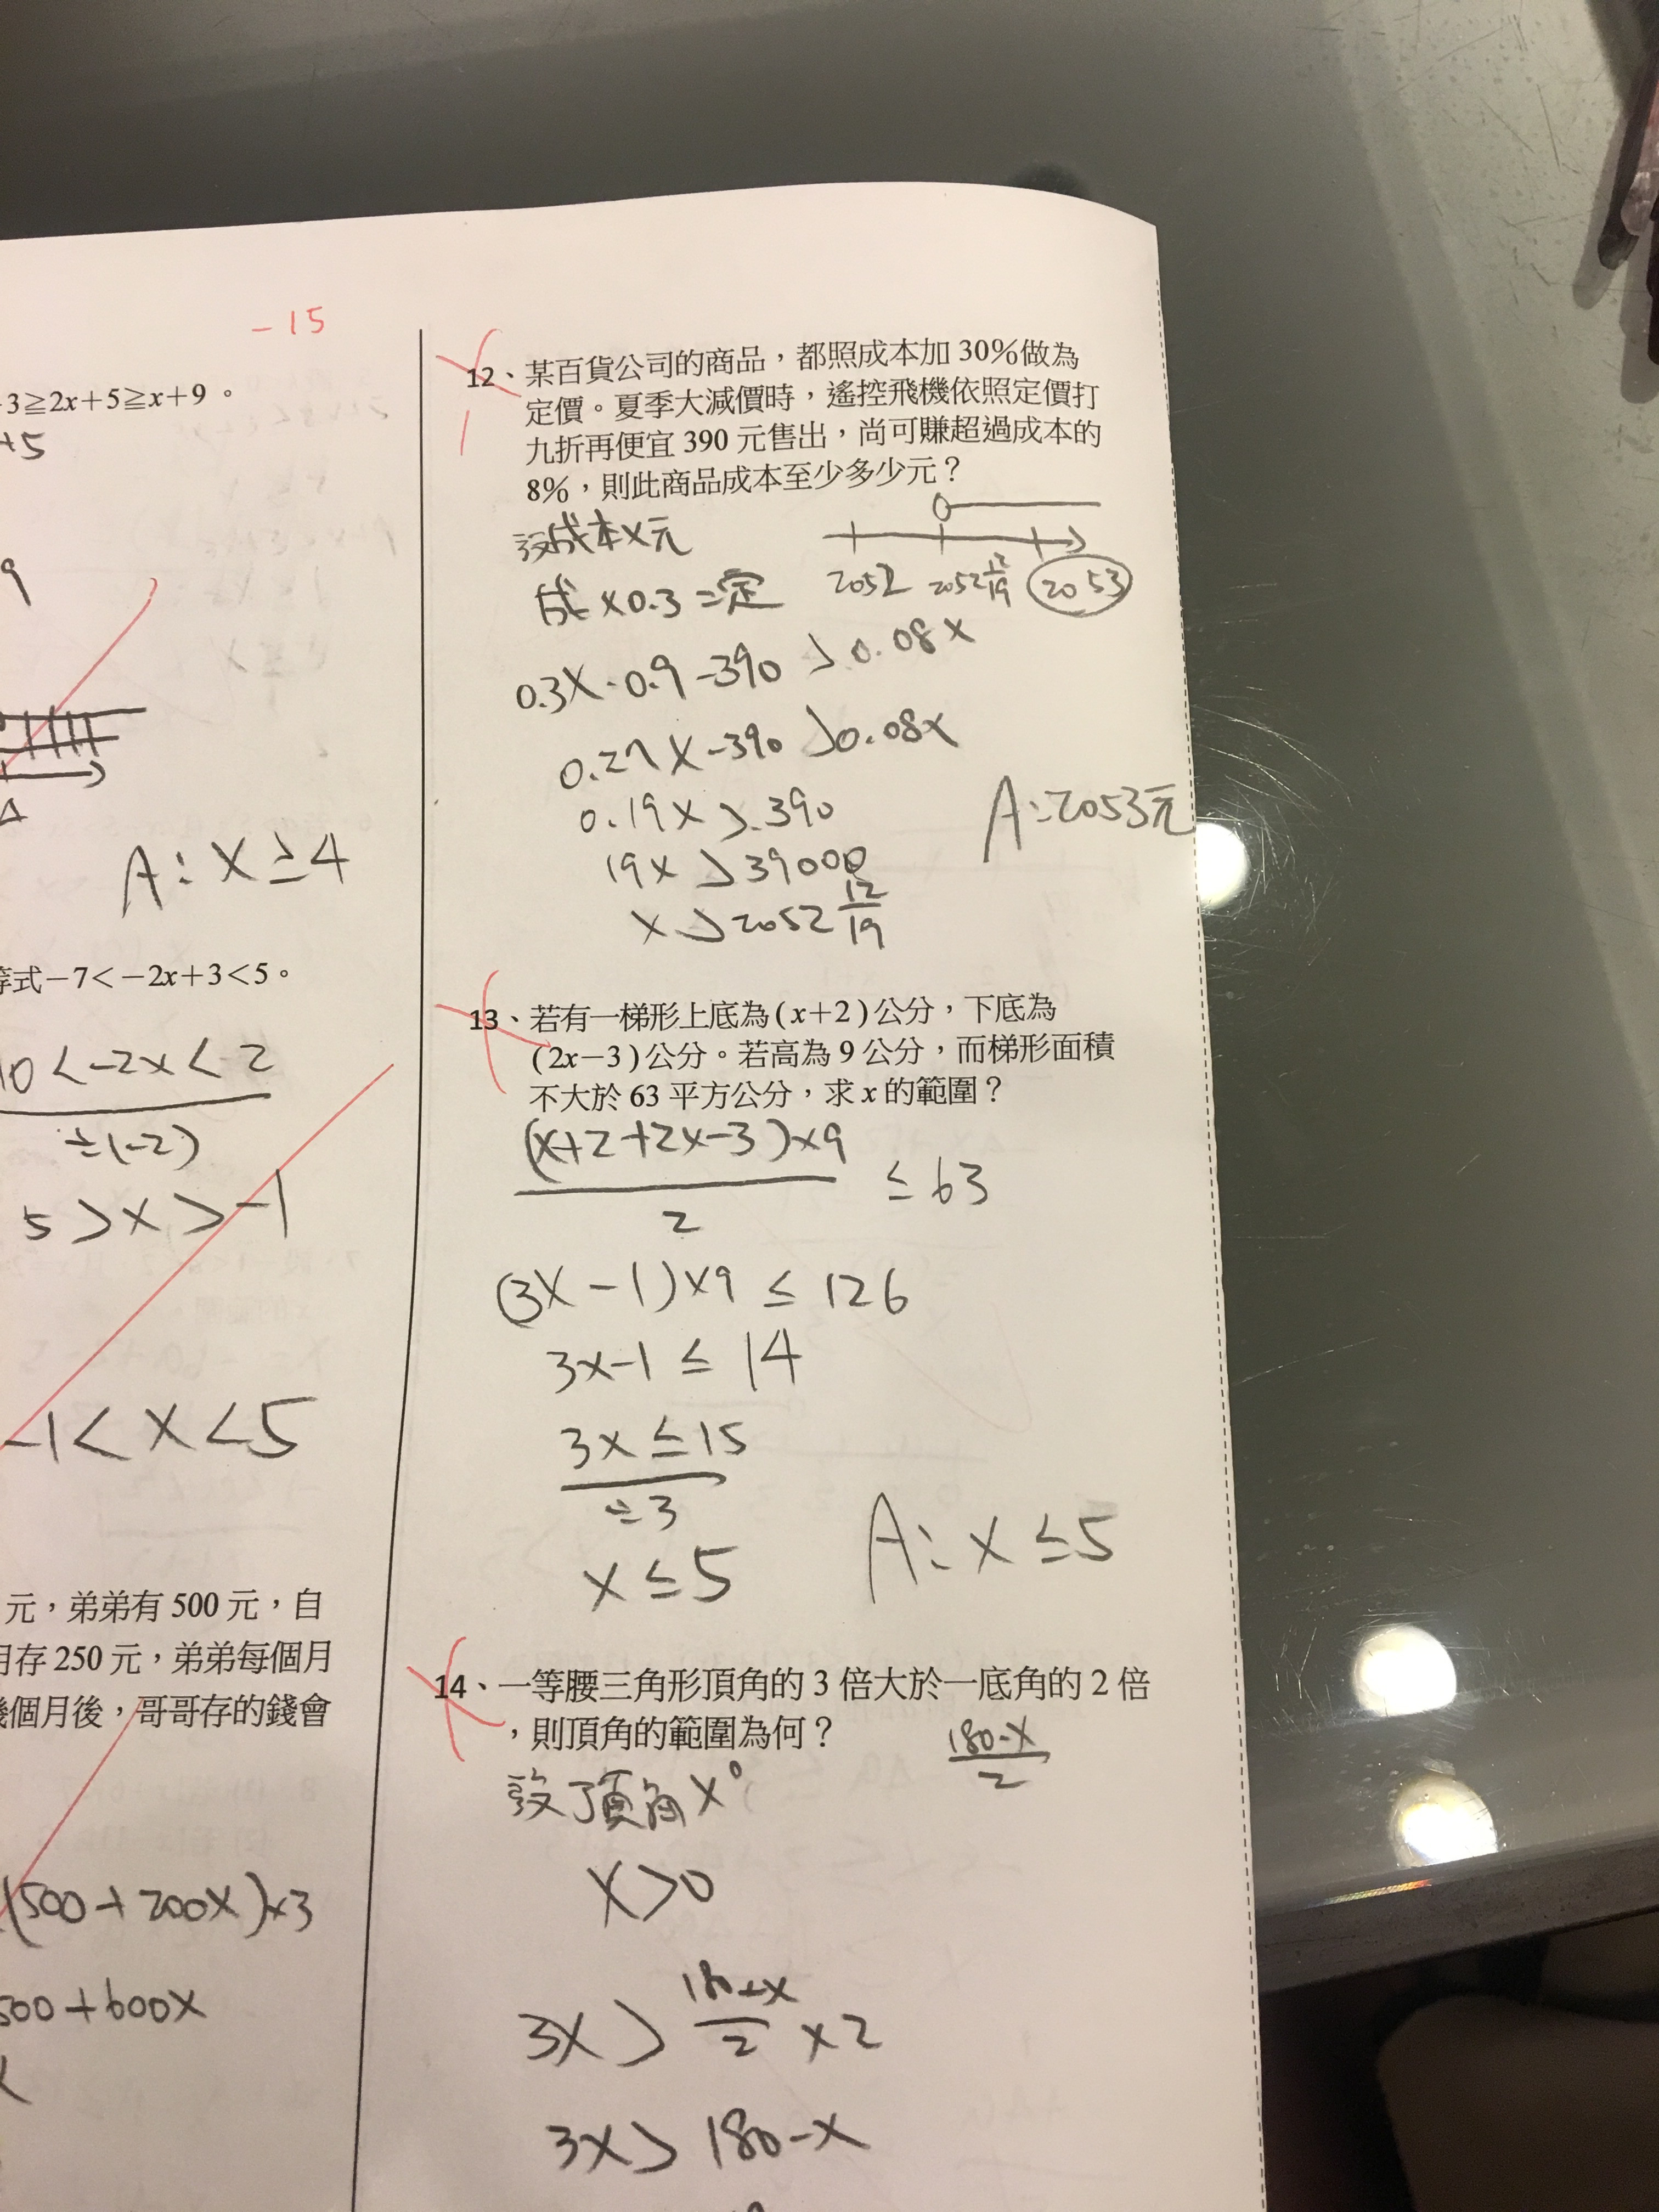 -15
-3≧2x+5≧x+9。
+5
9
A:X≥4
等式-7<-2x+3<5。
10<-2x<2
÷(-2)
5>x>-1
-1<x<5
元，弟弟有500元，自
月存250元，弟弟每個月
幾個月後，哥哥存的錢會
(500+200X)×3
500+600X
12、某百貨公司的商品，都照成本加30%做為
定價。夏季大減價時，遙控飛機依照定價打
九折再便宜390元售出，尚可賺超過成本的
8%，則此商品成本至少多少元？
設成本X元
2052 2052 12/19 2053
成×0.3=定
0.3X·0.9-390>0.08X
0.27X-390>0.08X
0.19X>390
19X>39000
X>2052 12/19
A:2053元
13、若有一梯形上底為(x+2)公分，下底為
(2x-3)公分。若高為9公分，而梯形面積
不大於63平方公分，求x的範圍？
(x+2+2x-3)×9
2
≤63
(3X-1)×9≤126
3x-1≤14
3x≤15
÷3
x≤5
A:x≤5
14、一等腰三角形頂角的3倍大於一底角的2倍
，則頂角的範圍為何？
180-X
2
設頂角X°
X>0
3X>
2
×2
3X>180-X